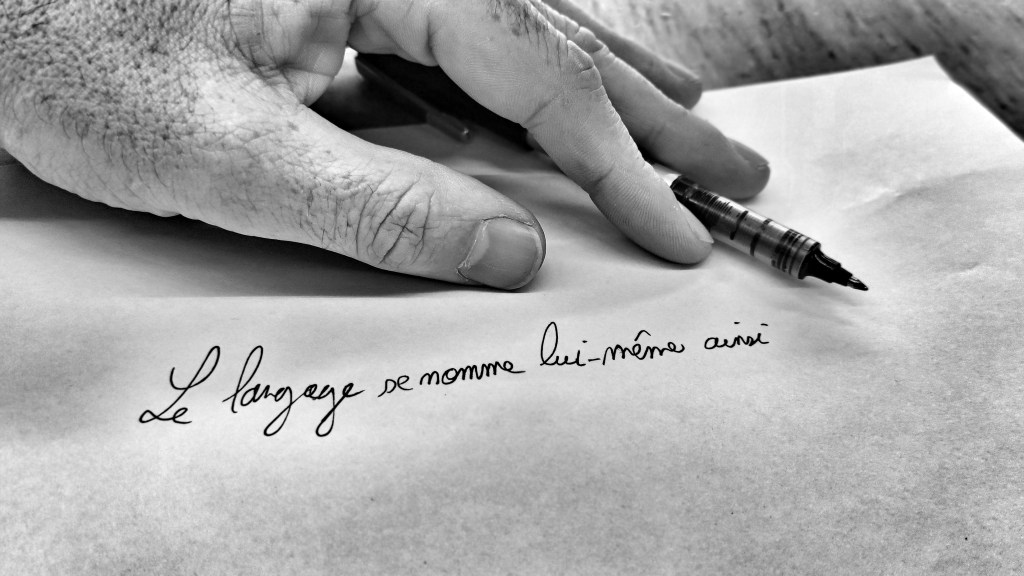 Le langage se nomme lui-même ainsi